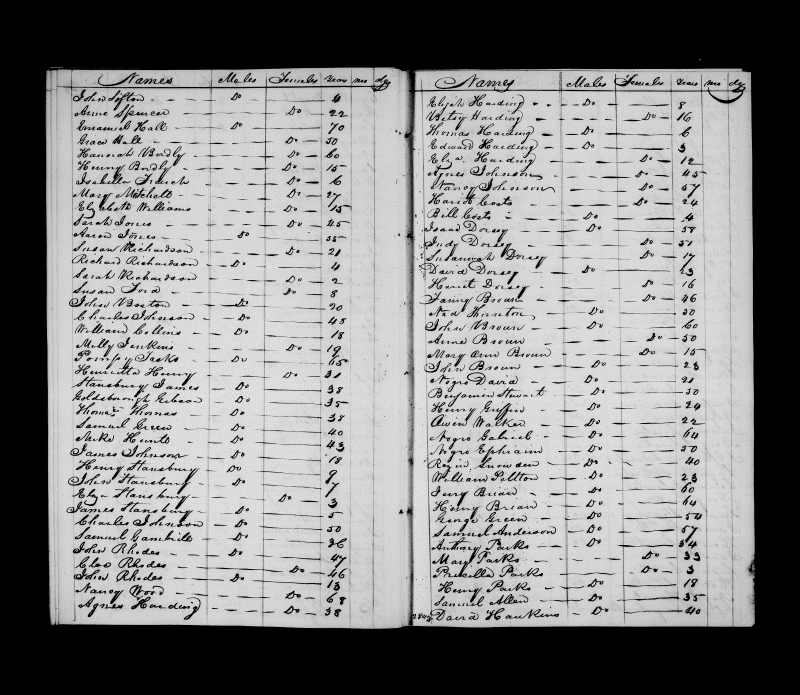 Names Males Females Years mo dys
John Sifton - - Do 4
Anne Spencer - Do - 22
Emanuel Hall - Do 70
Grace Hall - Do - 50
Hannah Bordly - Do - 60
Henny Bordly - Do - 15
Isabella French - Do - 6
Mary Mitchell - Do - 27
Elizabeth Williams - Do - 15
Sarah Jones - Do - 45
Aaron Jones - Do 55
Susan Richardson - Do - 21
Richard Richardson - Do 4
Sarah Richardson - Do - 2
Susan Ford - Do - 8
John Boston - Do 20
Charles Johnson - Do 45
William Collins - Do 18
Milly Jenkins - Do - 19
Pompy - Do 65
Henrietta Henry - Do - 31
Stansbury James - Do 38
Goldsborough Gibson - Do 35
Thomas Thomas - Do 38
Samuel Green - Do 40
Mike Hunt - Do 43
James Johnson - Do 18
Henry Stansbury - Do 9
John Stansbury - Do 7
Eliza Stansbury - Do - 3
James Stansbury - Do 5
Charles Johnson - Do 50
Samuel Gambrill - Do 36
John Rhodes - Do 47
Cleo Rhodes - Do - 46
John Rhodes - Do 13
Nancy Wood - Do - 68
Agnes Harding - Do - 38
Names Males Females Years mo dys
Elijah Harding - - Do 8
Betsy Harding - Do - 16
Thomas Harding - Do 6
Edward Harding - Do 3
Eliza. Harding - Do - 12
Agnes Johnson - Do - 45
Nancy Johnson - Do - 57
Hariot Costs - Do - 24
Bill Costs - Do 4
Isaac Dorsey - Do 58
Judy Dorsey - Do - 51
Susannah Dorsey - Do - 17
David Dorsey - Do 23
Harriet Dorsey - Do 16
Fanny Brown - Do - 46
Ned Thornton - Do 50
John Brown - Do 60
Anne Brown - Do - 50
Mary Ann Brown - Do - 15
John Brown - Do 23
Negro David - Do 21
Benjamin Stewart - Do 50
Henry Griffin - Do 24
Owen Walker - Do 22
Negro Gabriel - Do 64
Negro Ephraim - Do 50
Rezin Snowden - Do 40
William Pelton - Do 23
Jerry Brian - Do 60
Henny Brian - Do 64
George Green - Do 54
Samuel Anderson - Do 57
Anthony Parks - Do 34
Mary Parks - Do - 33
Priscilla Parks - Do - 3
Henry Parks - Do 18
Samuel Allen - Do 35
David Hawkins - Do 40